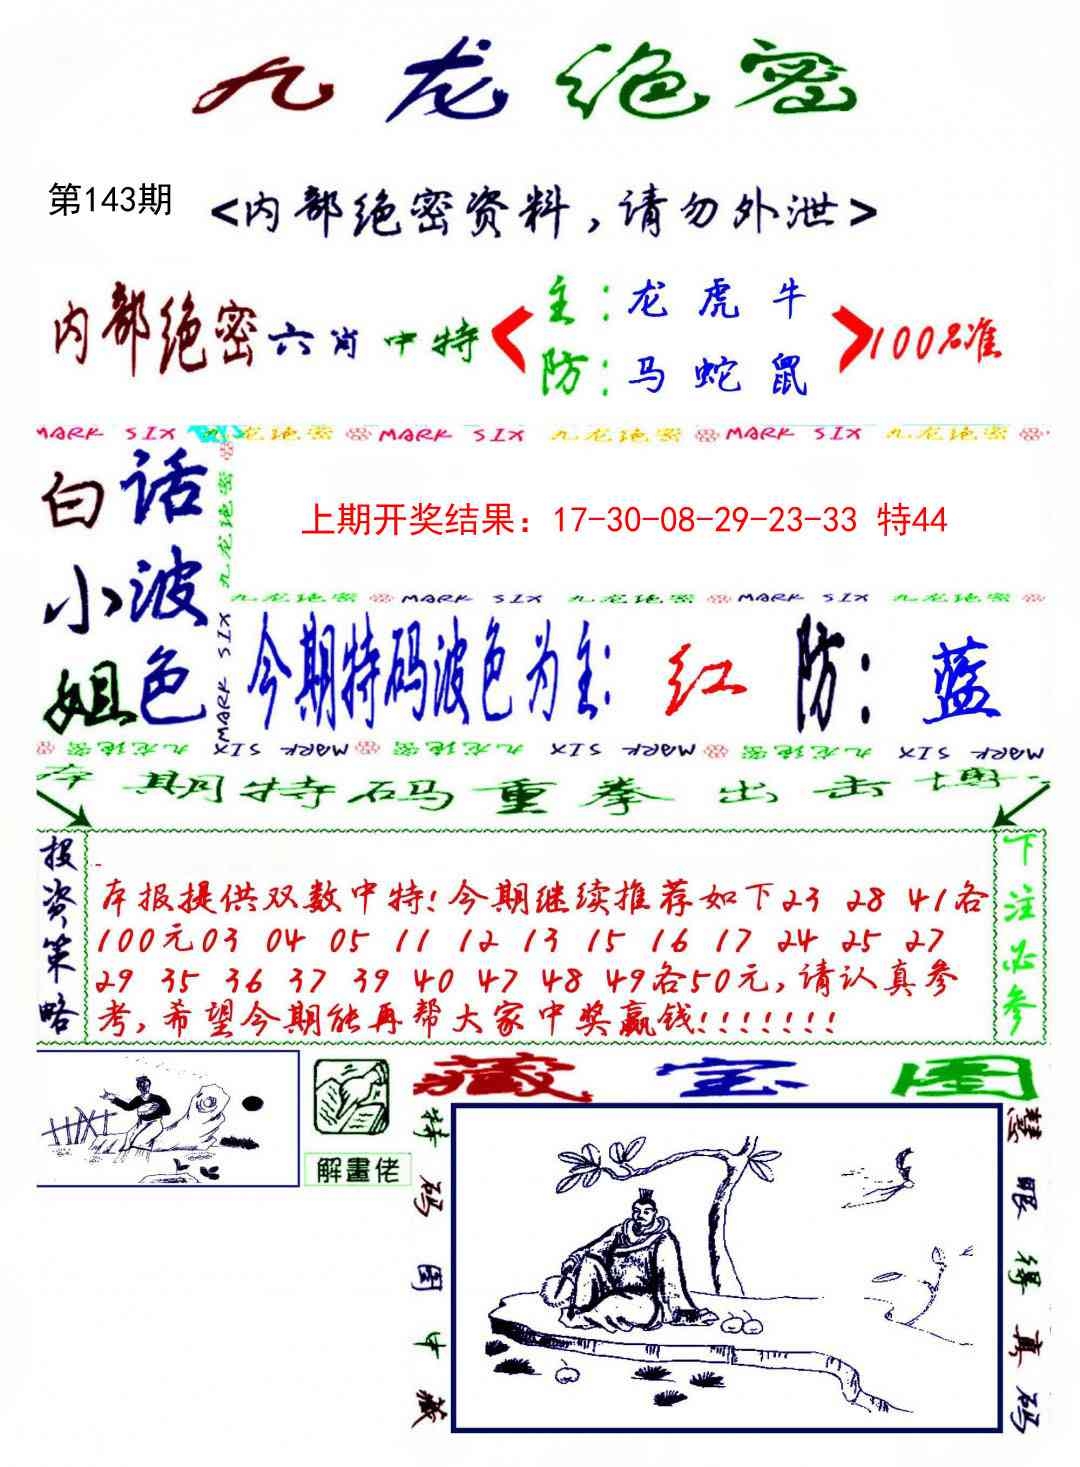 九龙绝密
第143期
<内部绝密资料,请勿外泄>
内部绝密六肖中特
主:龙 虎 牛
防:马 蛇 鼠
100%准
MARK SIX 九龙绝密 MARK SIX 九龙绝密 MARK SIX 九龙绝密
白话
小波
姐色
九龙绝密
MARK SIX
上期开奖结果：17-30-08-29-23-33 特44
九龙绝密 MARK SIX 九龙绝密 MARK SIX 九龙绝密
今期特码波色为主: 红 防: 蓝
九龙绝密 MARK SIX 九龙绝密 MARK SIX 九龙绝密 MARK SIX
本期特码重拳出击博
投资策略
本报提供双数中特!今期继续推荐如下23 28 41各
100元03 04 05 11 12 13 15 16 17 24 25 27
29 35 36 37 39 40 47 48 49各50元,请认真参
考,希望今期能再帮大家中奖赢钱!!!!!!!
下注必参
解畫佬
藏宝图
特码图中藏
慧眼得真码